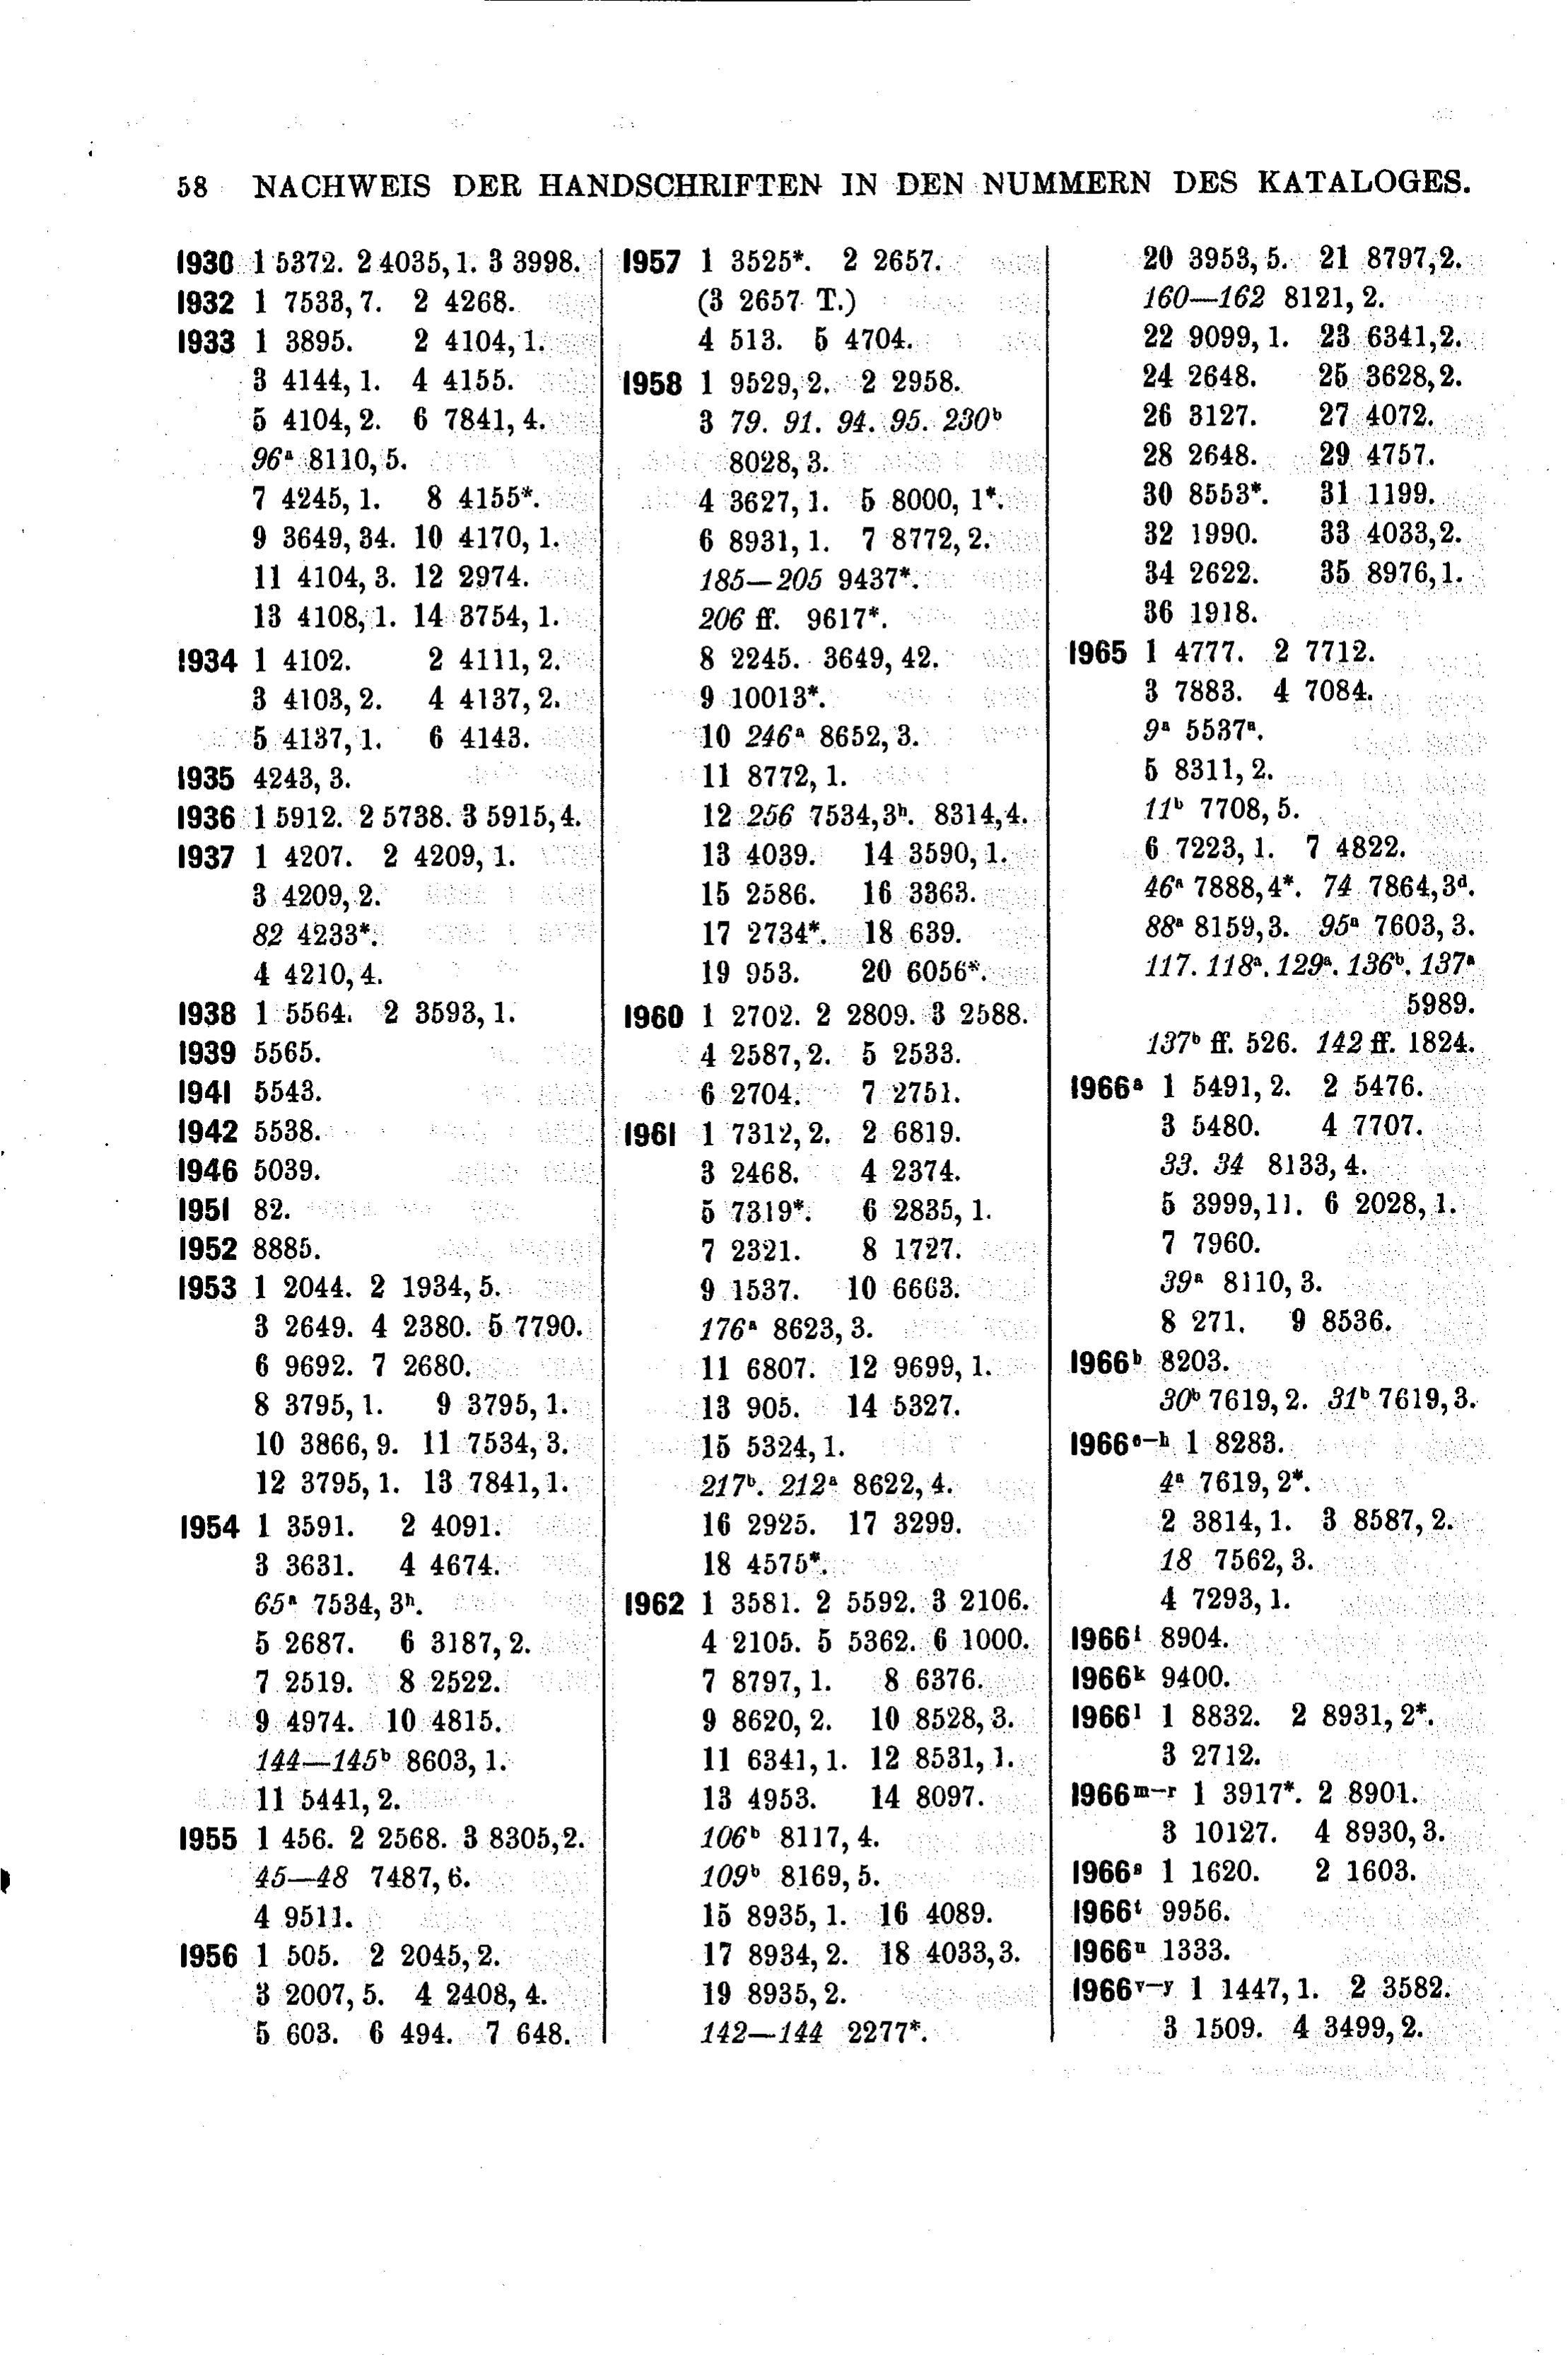 58 NACHWEIS DER HANDSCHRIFTEN IN DEN NUMMERN DES KATALOGES.
1930 1 5372. 2 4035, 1. 3 3998.
1932 1 7533, 7. 2 4268.
1933 1 3895. 2 4104, 1.
3 4144, 1. 4 4155.
5 4104, 2. 6 7841, 4.
96ᵃ 8110, 5.
7 4245, 1. 8 4155*.
9 3649, 34. 10 4170, 1.
11 4104, 3. 12 2974.
13 4108, 1. 14 3754, 1.
1934 1 4102. 2 4111, 2.
3 4103, 2. 4 4137, 2.
5 4137, 1. 6 4143.
1935 4243, 3.
1936 1 5912. 2 5738. 3 5915, 4.
1937 1 4207. 2 4209, 1.
3 4209, 2.
82 4233*.
4 4210, 4.
1938 1 5564. 2 3593, 1.
1939 5565.
1941 5543.
1942 5538.
1946 5039.
1951 82.
1952 8885.
1953 1 2044. 2 1934, 5.
3 2649. 4 2380. 5 7790.
6 9692. 7 2680.
8 3795, 1. 9 3795, 1.
10 3866, 9. 11 7534, 3.
12 3795, 1. 13 7841, 1.
1954 1 3591. 2 4091.
3 3631. 4 4674.
65ᵃ 7534, 3ʰ.
5 2687. 6 3187, 2.
7 2519. 8 2522.
9 4974. 10 4815.
144—145ᵇ 8603, 1.
11 5441, 2.
1955 1 456. 2 2568. 3 8305, 2.
45—48 7487, 6.
4 9511.
1956 1 505. 2 2045, 2.
3 2007, 5. 4 2408, 4.
5 603. 6 494. 7 648.
1957 1 3525*. 2 2657.
(3 2657 T.)
4 513. 5 4704.
1958 1 9529, 2. 2 2958.
3 79. 91. 94. 95. 230ᵇ
8028, 3.
4 3627, 1. 5 8000, 1*.
6 8931, 1. 7 8772, 2.
185—205 9437*.
206 ff. 9617*.
8 2245. 3649, 42.
9 10013*.
10 246ᵃ 8652, 3.
11 8772, 1.
12 256 7534, 3ʰ. 8314, 4.
13 4039. 14 3590, 1.
15 2586. 16 3363.
17 2734*. 18 639.
19 953. 20 6056*.
1960 1 2702. 2 2809. 3 2588.
4 2587, 2. 5 2533.
6 2704. 7 2751.
1961 1 7312, 2. 2 6819.
3 2468. 4 2374.
5 7319*. 6 2835, 1.
7 2321. 8 1727.
9 1537. 10 6663.
176ᵃ 8623, 3.
11 6807. 12 9699, 1.
13 905. 14 5327.
15 5324, 1.
217ᵇ. 212ᵃ 8622, 4.
16 2925. 17 3299.
18 4575*.
1962 1 3581. 2 5592. 3 2106.
4 2105. 5 5362. 6 1000.
7 8797, 1. 8 6376.
9 8620, 2. 10 8528, 3.
11 6341, 1. 12 8531, 1.
13 4953. 14 8097.
106ᵇ 8117, 4.
109ᵇ 8169, 5.
15 8935, 1. 16 4089.
17 8934, 2. 18 4033, 3.
19 8935, 2.
142—144 2277*.
20 3953, 5. 21 8797, 2.
160—162 8121, 2.
22 9099, 1. 23 6341, 2.
24 2648. 25 3628, 2.
26 3127. 27 4072.
28 2648. 29 4757.
30 8553*. 31 1199.
32 1990. 33 4033, 2.
34 2622. 35 8976, 1.
36 1918.
1965 1 4777. 2 7712.
3 7883. 4 7084.
9ᵃ 5537ᵃ.
5 8311, 2.
11ᵇ 7708, 5.
6 7223, 1. 7 4822.
46ᵃ 7888, 4*. 74 7864, 3ᵈ.
88ᵃ 8159, 3. 95ᵃ 7603, 3.
117. 118ᵃ. 129ᵃ. 136ᵇ. 137ᵃ
5989.
137ᵇ ff. 526. 142 ff. 1824.
1966ᵃ 1 5491, 2. 2 5476.
3 5480. 4 7707.
33. 34 8133, 4.
5 3999, 11. 6 2028, 1.
7 7960.
39ᵃ 8110, 3.
8 271. 9 8536.
1966ᵇ 8203.
30ᵇ 7619, 2. 31ᵇ 7619, 3.
1966ᶜ⁻ʰ 1 8283.
4ᵃ 7619, 2*.
2 3814, 1. 3 8587, 2.
18 7562, 3.
4 7293, 1.
1966ⁱ 8904.
1966ᵏ 9400.
1966ˡ 1 8832. 2 8931, 2*.
3 2712.
1966ᵐ⁻ʳ 1 3917*. 2 8901.
3 10127. 4 8930, 3.
1966ˢ 1 1620. 2 1603.
1966ᵗ 9956.
1966ᵘ 1333.
1966ᵛ⁻ʸ 1 1447, 1. 2 3582.
3 1509. 4 3499, 2.